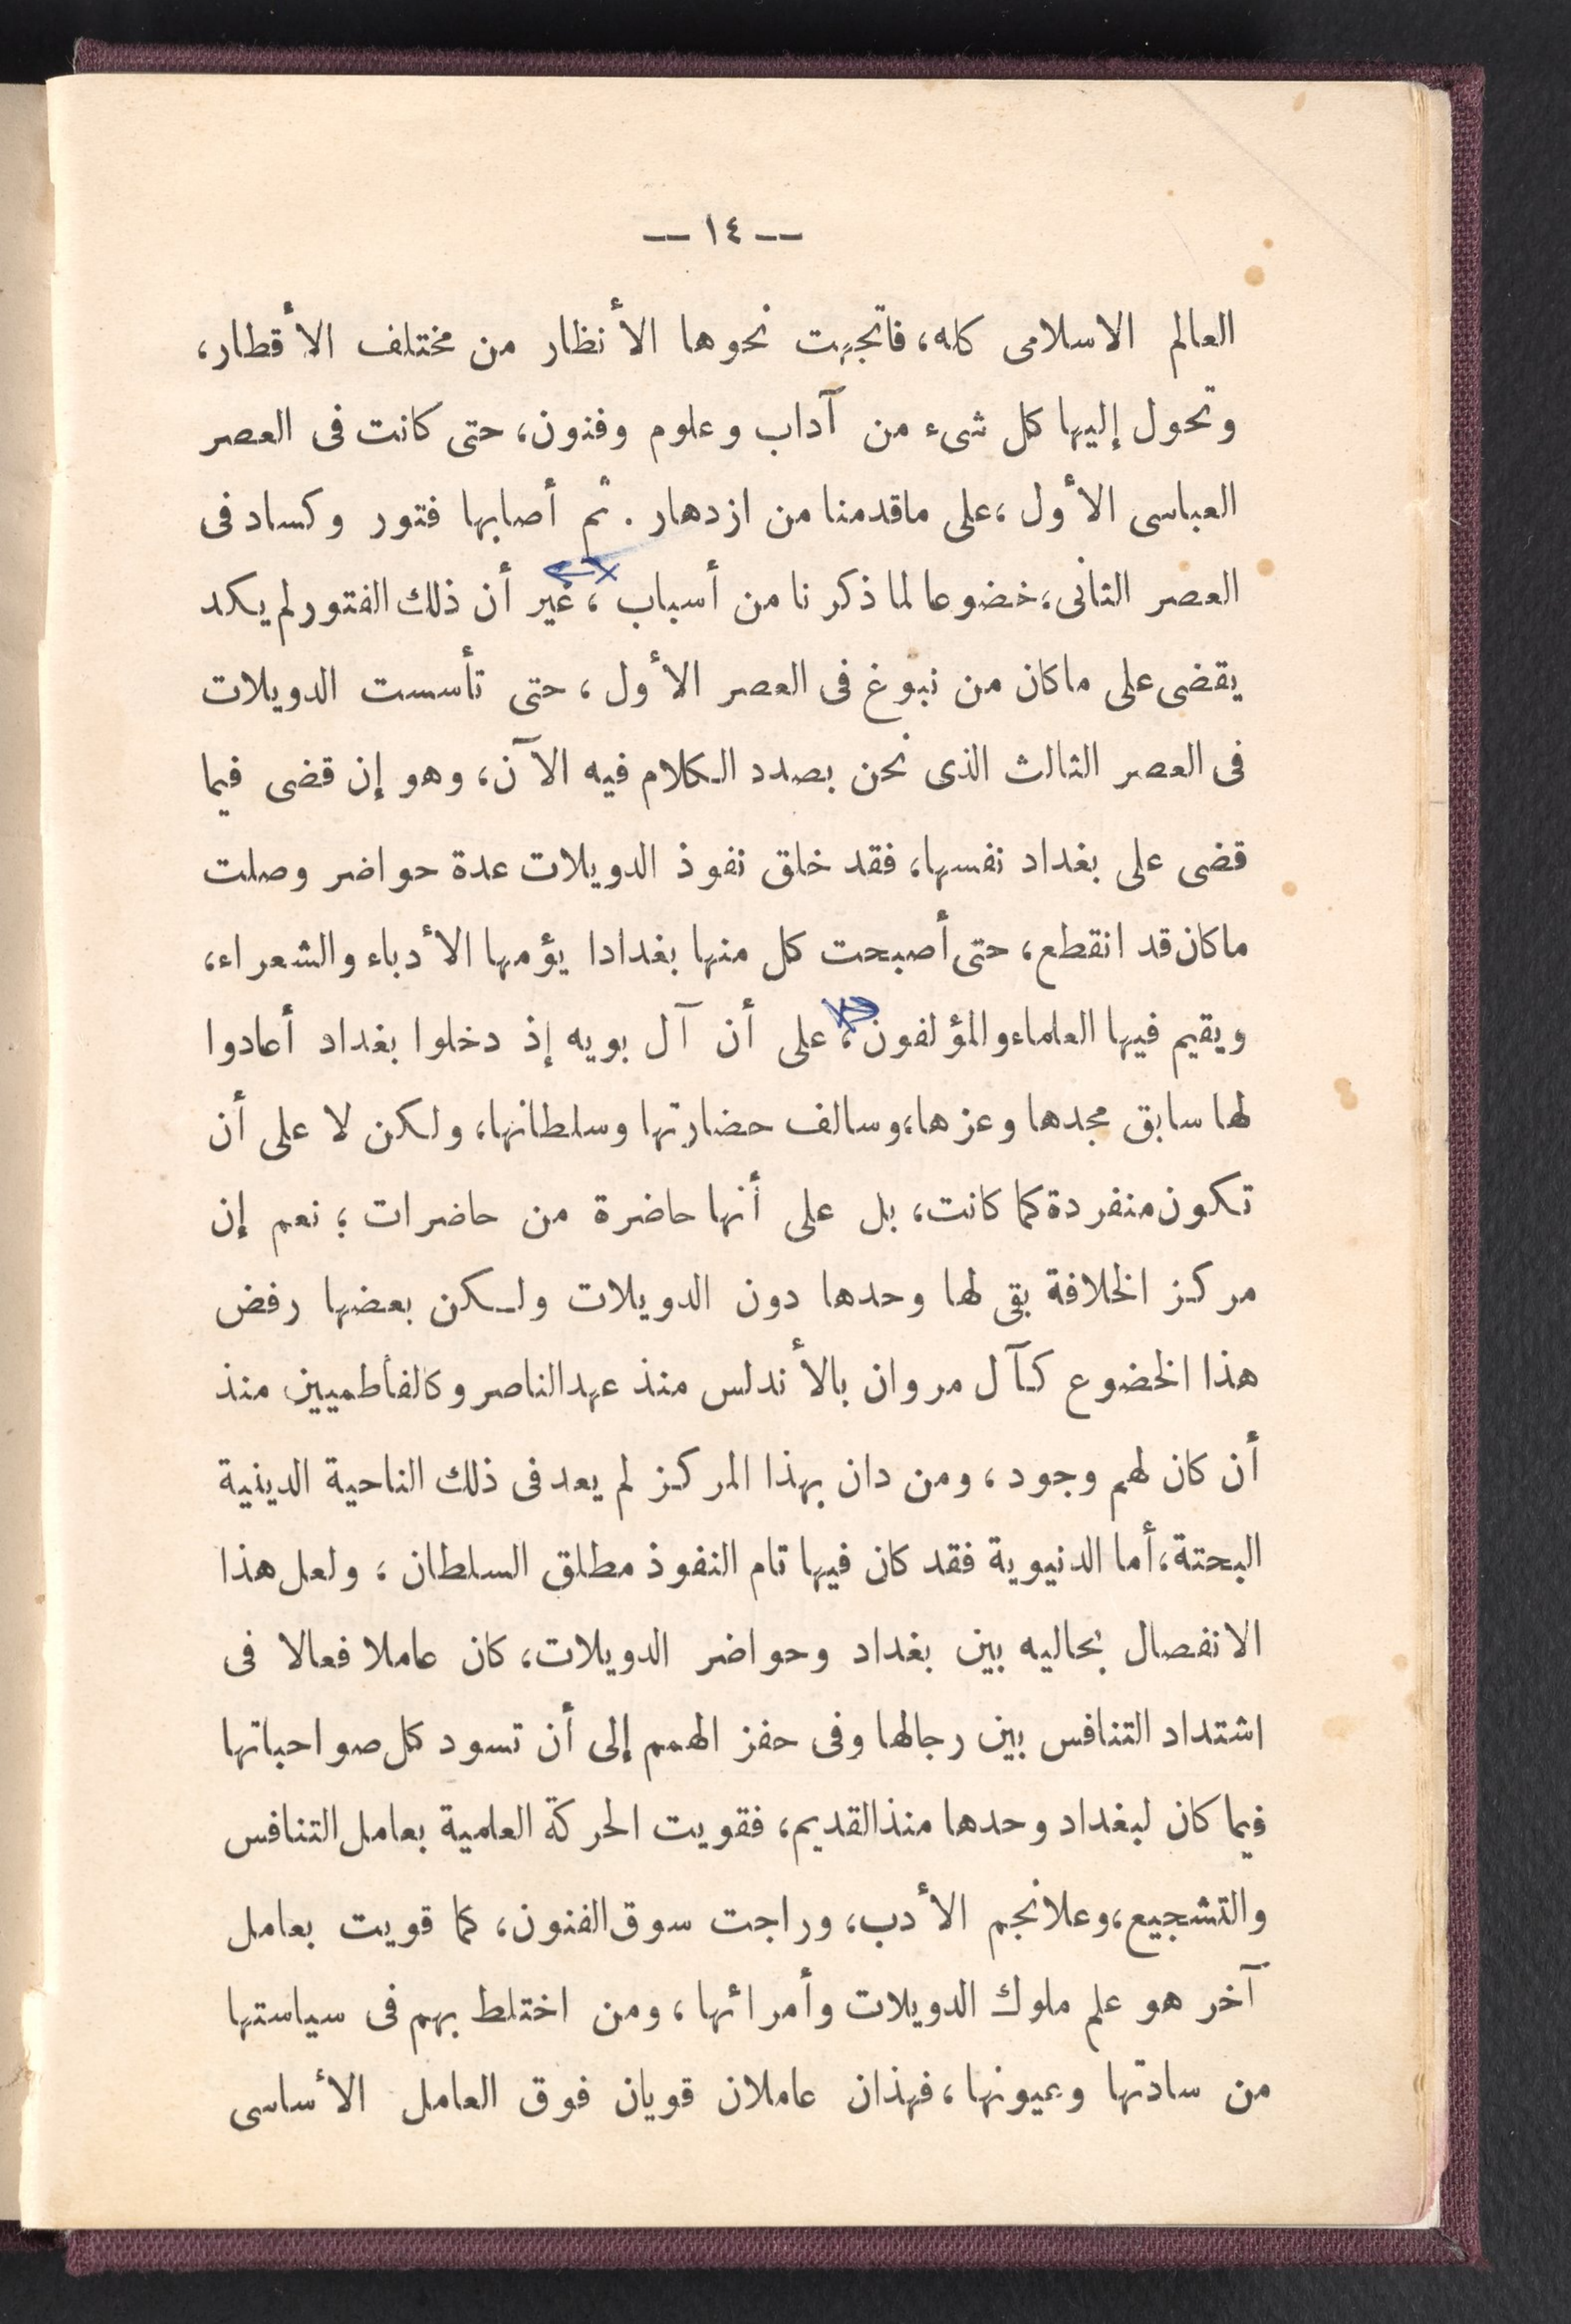 — ١٤ —
العالم الاسلامى كله، فاتجهت نحوها الأنظار من مختلف الأقطار،
وتحول إليها كل شىء من آداب وعلوم وفنون، حتى كانت فى العصر
العباسى الأول، على ماقدمنا من ازدهار. ثم أصابها فتور وكساد فى
العصر الثانى، خضوعا لما ذكرنا من أسباب، غير أن ذلك الفتور لم يكد
يقضى على ماكان من نبوغ فى العصر الأول، حتى تأسست الدويلات
فى العصر الثالث الذى نحن بصدد الكلام فيه الآن، وهو إن قضى فيما
قضى على بغداد نفسها، فقد خلق نفوذ الدويلات عدة حواضر وصلت
ماكان قد انقطع، حتى أصبحت كل منها بغدادا يؤمها الأدباء والشعراء،
ويقيم فيها العلماء والمؤلفون، على أن آل بويه إذ دخلوا بغداد أعادوا
لها سابق مجدها وعزها، وسالف حضارتها وسلطانها، ولكن لا على أن
تكون منفردة كما كانت، بل على أنها حاضرة من حاضرات؛ نعم إن
مركز الخلافة بقى لها وحدها دون الدويلات ولكن بعضها رفض
هذا الخضوع كآل مروان بالأندلس منذ عهد الناصر وكالفاطميين منذ
أن كان لهم وجود، ومن دان بهذا المركز لم يعد فى ذلك الناحية الدينية
البحتة، أما الدنيوية فقد كان فيها تام النفوذ مطلق السلطان، ولعل هذا
الانفصال بحاليه بين بغداد وحواضر الدويلات، كان عاملا فعالا فى
اشتداد التنافس بين رجالها وفى حفز الهمم إلى أن تسود كل صواحباتها
فيما كان لبغداد وحدها منذ القديم، فقويت الحركة العلمية بعامل التنافس
والتشجيع، وعلا نجم الأدب، وراجت سوق الفنون، كما قويت بعامل
آخر هو علم ملوك الدويلات وأمرائها، ومن اختلط بهم فى سياستها
من سادتها وعيونها، فهذان عاملان قويان فوق العامل الأساسى